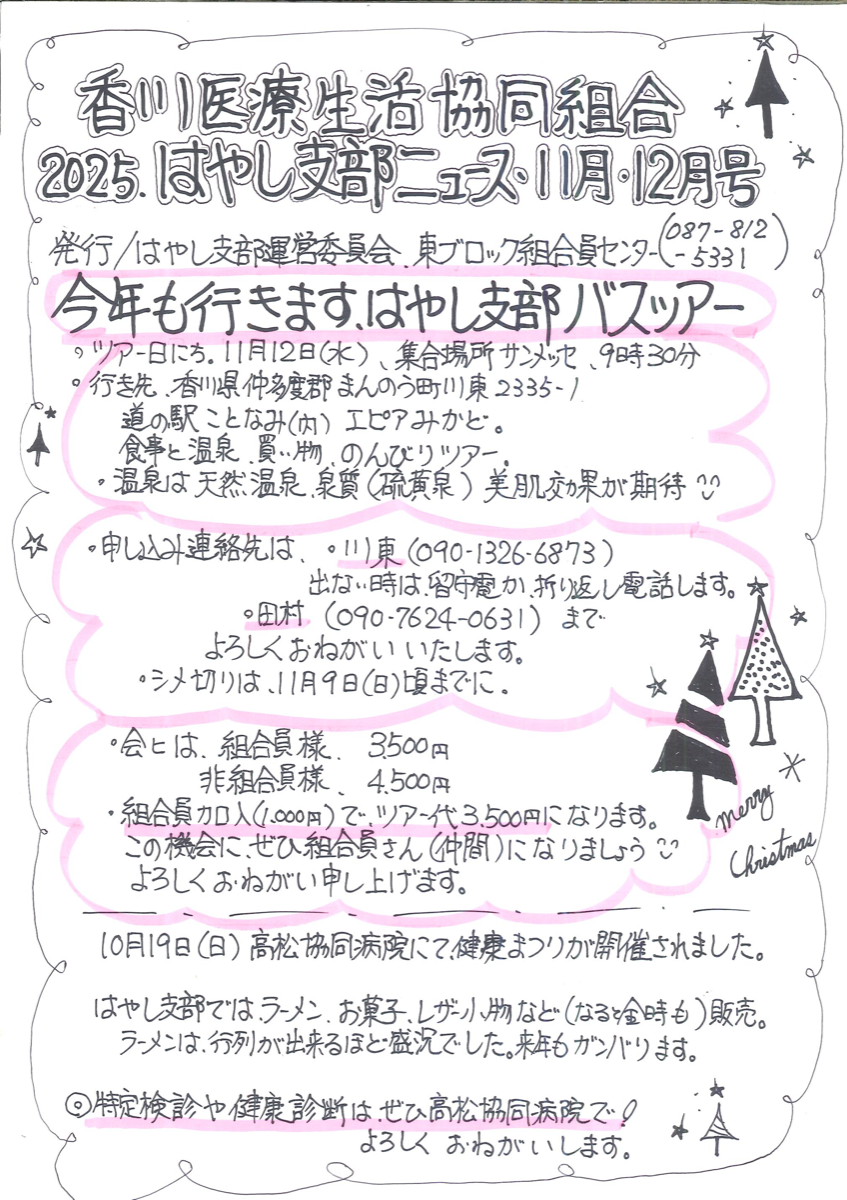 香川医療生活協同組合
2025.はやし支部ニュース・11月・12月号
発行/はやし支部運営委員会、東ブロック組合員センター(087-812-5331)
今年も行きます、はやし支部バスツアー
・ツアー日にち。11月12日(水)、集合場所サンメッセ、9時30分
・行き先、香川県仲多度郡まんのう町川東2335-1
道の駅ことなみ(内)エピアみかど。
食事と温泉、買い物、のんびりツアー。
・温泉は天然温泉、泉質(硫黄泉)美肌効果が期待
・申し込み連絡先は、・川東(090-1326-6873)
出ない時は、留守電か、折り返し電話します。
・田村(090-7624-0631)まで
よろしくおねがいいたします。
・シメ切りは、11月9日(日)頃までに。
・会ヒは、組合員様、3,500円
非組合員様、4,500円
・組合員加入(1,000円)で、ツアー代、3,500円になります。
この機会に、ぜひ組合員さん(仲間)になりましょう
よろしくおねがい申し上げます。
merry
Christmas
10月19日(日)高松協同病院にて、健康まつりが開催されました。
はやし支部では、ラーメン、お菓子、レザー小物など(なると金時も)販売。
ラーメンは、行列が出来るほど盛況でした。来年もガンバります。
◎特定検診や健康診断は、ぜひ高松協同病院で!
よろしくおねがいします。